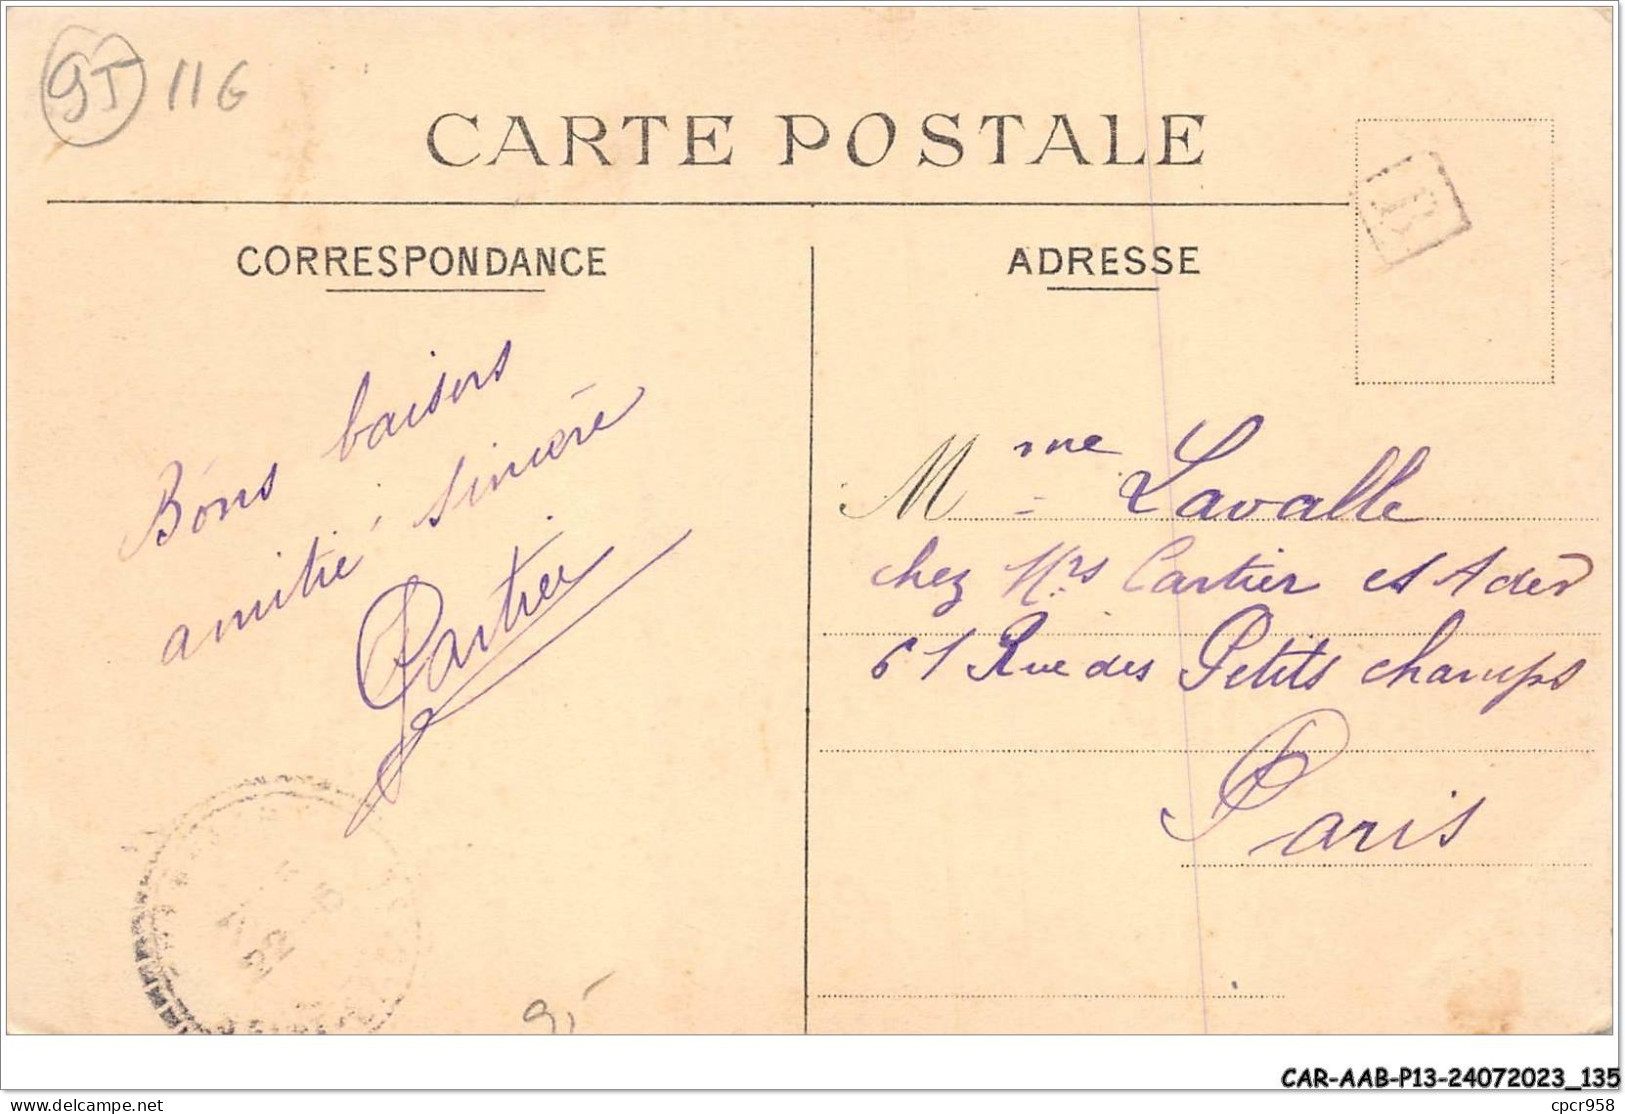 95 116
CARTE POSTALE
R
CORRESPONDANCE
ADRESSE
Bons baisers
amitié sincère
Mme Lavalle
chez Mrs Cartier et Ader
61 Rue des Petits champs
Paris
95
CAR-AAB-P13-24072023_135
delcampe.net
cpcr958